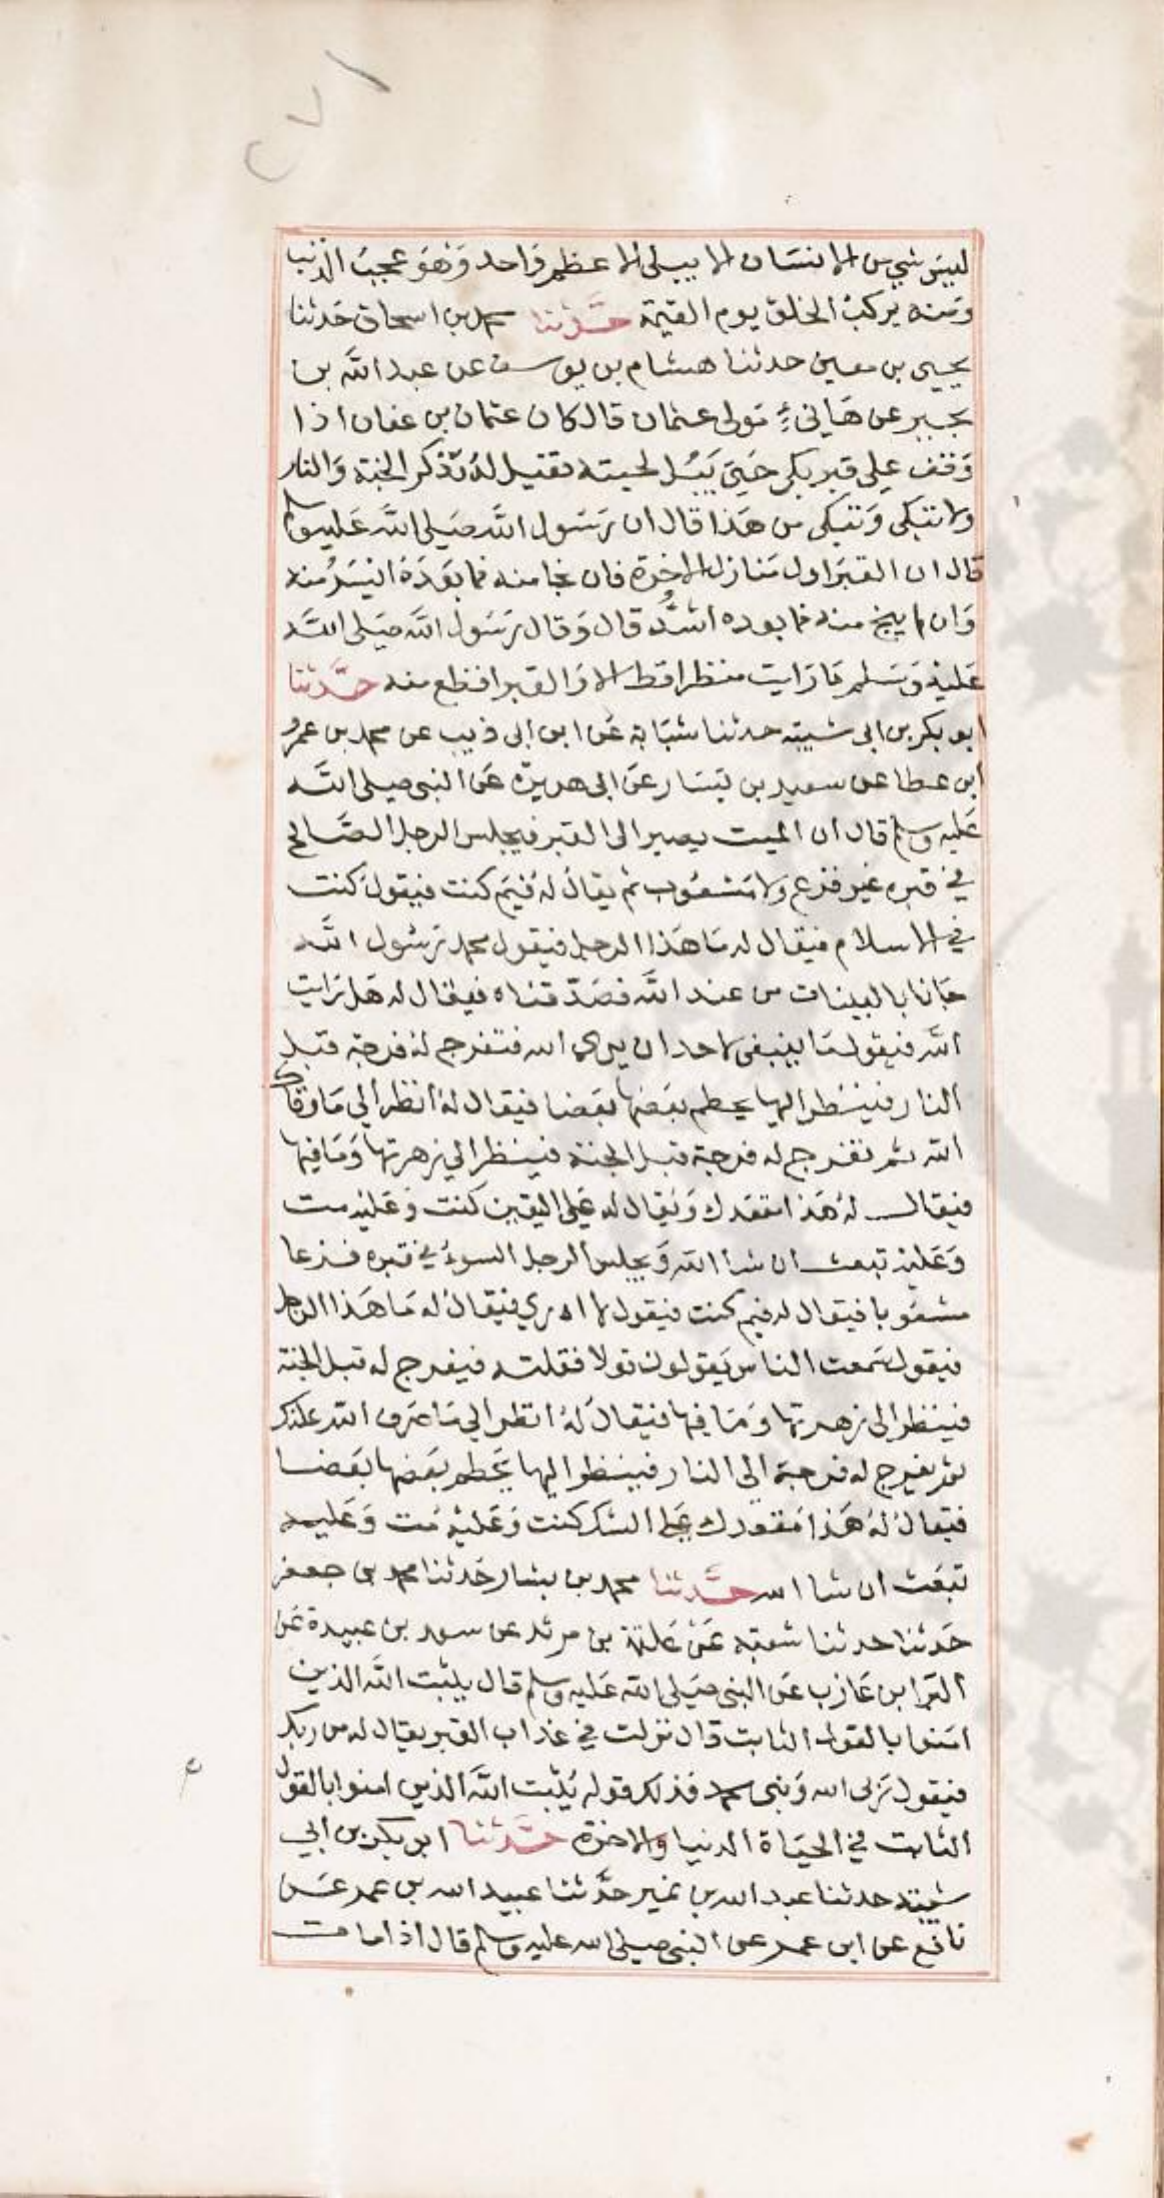 ٢٧١
ليس شي من الانسان الا يبلى الا عظم واحد وهو عجب الذنب
ومنه يركب الخلق يوم القيمة حدثنا محمد بن اسحاق حدثنا
يحيى بن معين حدثنا هشام بن يوسف عن عبد الله بن
بجير عن هانىء مولى عثمان قال كان عثمان بن عفان اذا
وقف على قبر بكى حتى يبل لحيته فقيل له تذكر الجنة والنار
ولا تبكى وتبكى من هذا قال ان رسول الله صلى الله عليه وسلم
قال ان القبر اول منازل الاخرة فان نجا منه فما بعده ايسر منه
وان لم ينج منه فما بعده اشد قال وقال رسول الله صلى الله
عليه وسلم ما رايت منظرا قط الا والقبر افظع منه حدثنا
ابو بكر بن ابى شيبة حدثنا شبابة عن ابن ابى ذيب عن محمد بن عمرو
ابن عطا عن سعيد بن يسار عن ابى هريرة عن النبى صلى الله
عليه وسلم قال ان الميت يصير الى القبر فيجلس الرجل الصالح
في قبره غير فزع ولا مشعوب ثم يقال له فيم كنت فيقول كنت
في الاسلام فيقال له ما هذا الرجل فيقول محمد رسول الله
جانا بالبينات من عند الله فصدقناه فيقال له هل رايت
الله فيقول ما ينبغى لاحد ان يرى الله فتفرج له فرجة قبل
النار فينظر اليها يحطم بعضها بعضا فيقال له انظر الي ما وقاك
الله ثم تفرج له فرجة قبل الجنة فينظر الي زهرتها وما فيها
فيقال له هذا مقعدك ويقال له على اليقين كنت وعليه مت
وعليه تبعث ان شا الله ويجلس الرجل السوء في قبره فزعا
مشعوبا فيقال له فيم كنت فيقول لا ادري فيقال له ما هذا الرجل
فيقول سمعت الناس يقولون قولا فقلته فيفرج له قبل الجنة
فينظر الى زهرتها وما فيها فيقال له انظر الي ما صرف الله عنك
ثم يفرج له فرجة الى النار فينظر اليها يحطم بعضها بعضا
فيقال له هذا مقعدك على الشك كنت وعليه مت وعليه
تبعث ان شا الله حدثنا محمد بن بشار حدثنا محمد بن جعفر
حدثنا حدثنا شعبه عن علقمة بن مرثد عن سعد بن عبيدة عن
البرا بن عازب عن النبى صلى الله عليه وسلم قال يثبت الله الذين
امنوا بالقول الثابت قال نزلت في عذاب القبر يقال له من ربك
فيقول ربى الله ونبى محمد فذلك قوله يثبت الله الذين امنوا بالقول
الثابت في الحياة الدنيا والاخرة حدثنا ابو بكر بن ابي
شيبة حدثنا عبد الله بن نمير حدثنا عبيد الله بن عمر عن
نافع عن ابن عمر عن النبى صلى الله عليه وسلم قال اذا مات